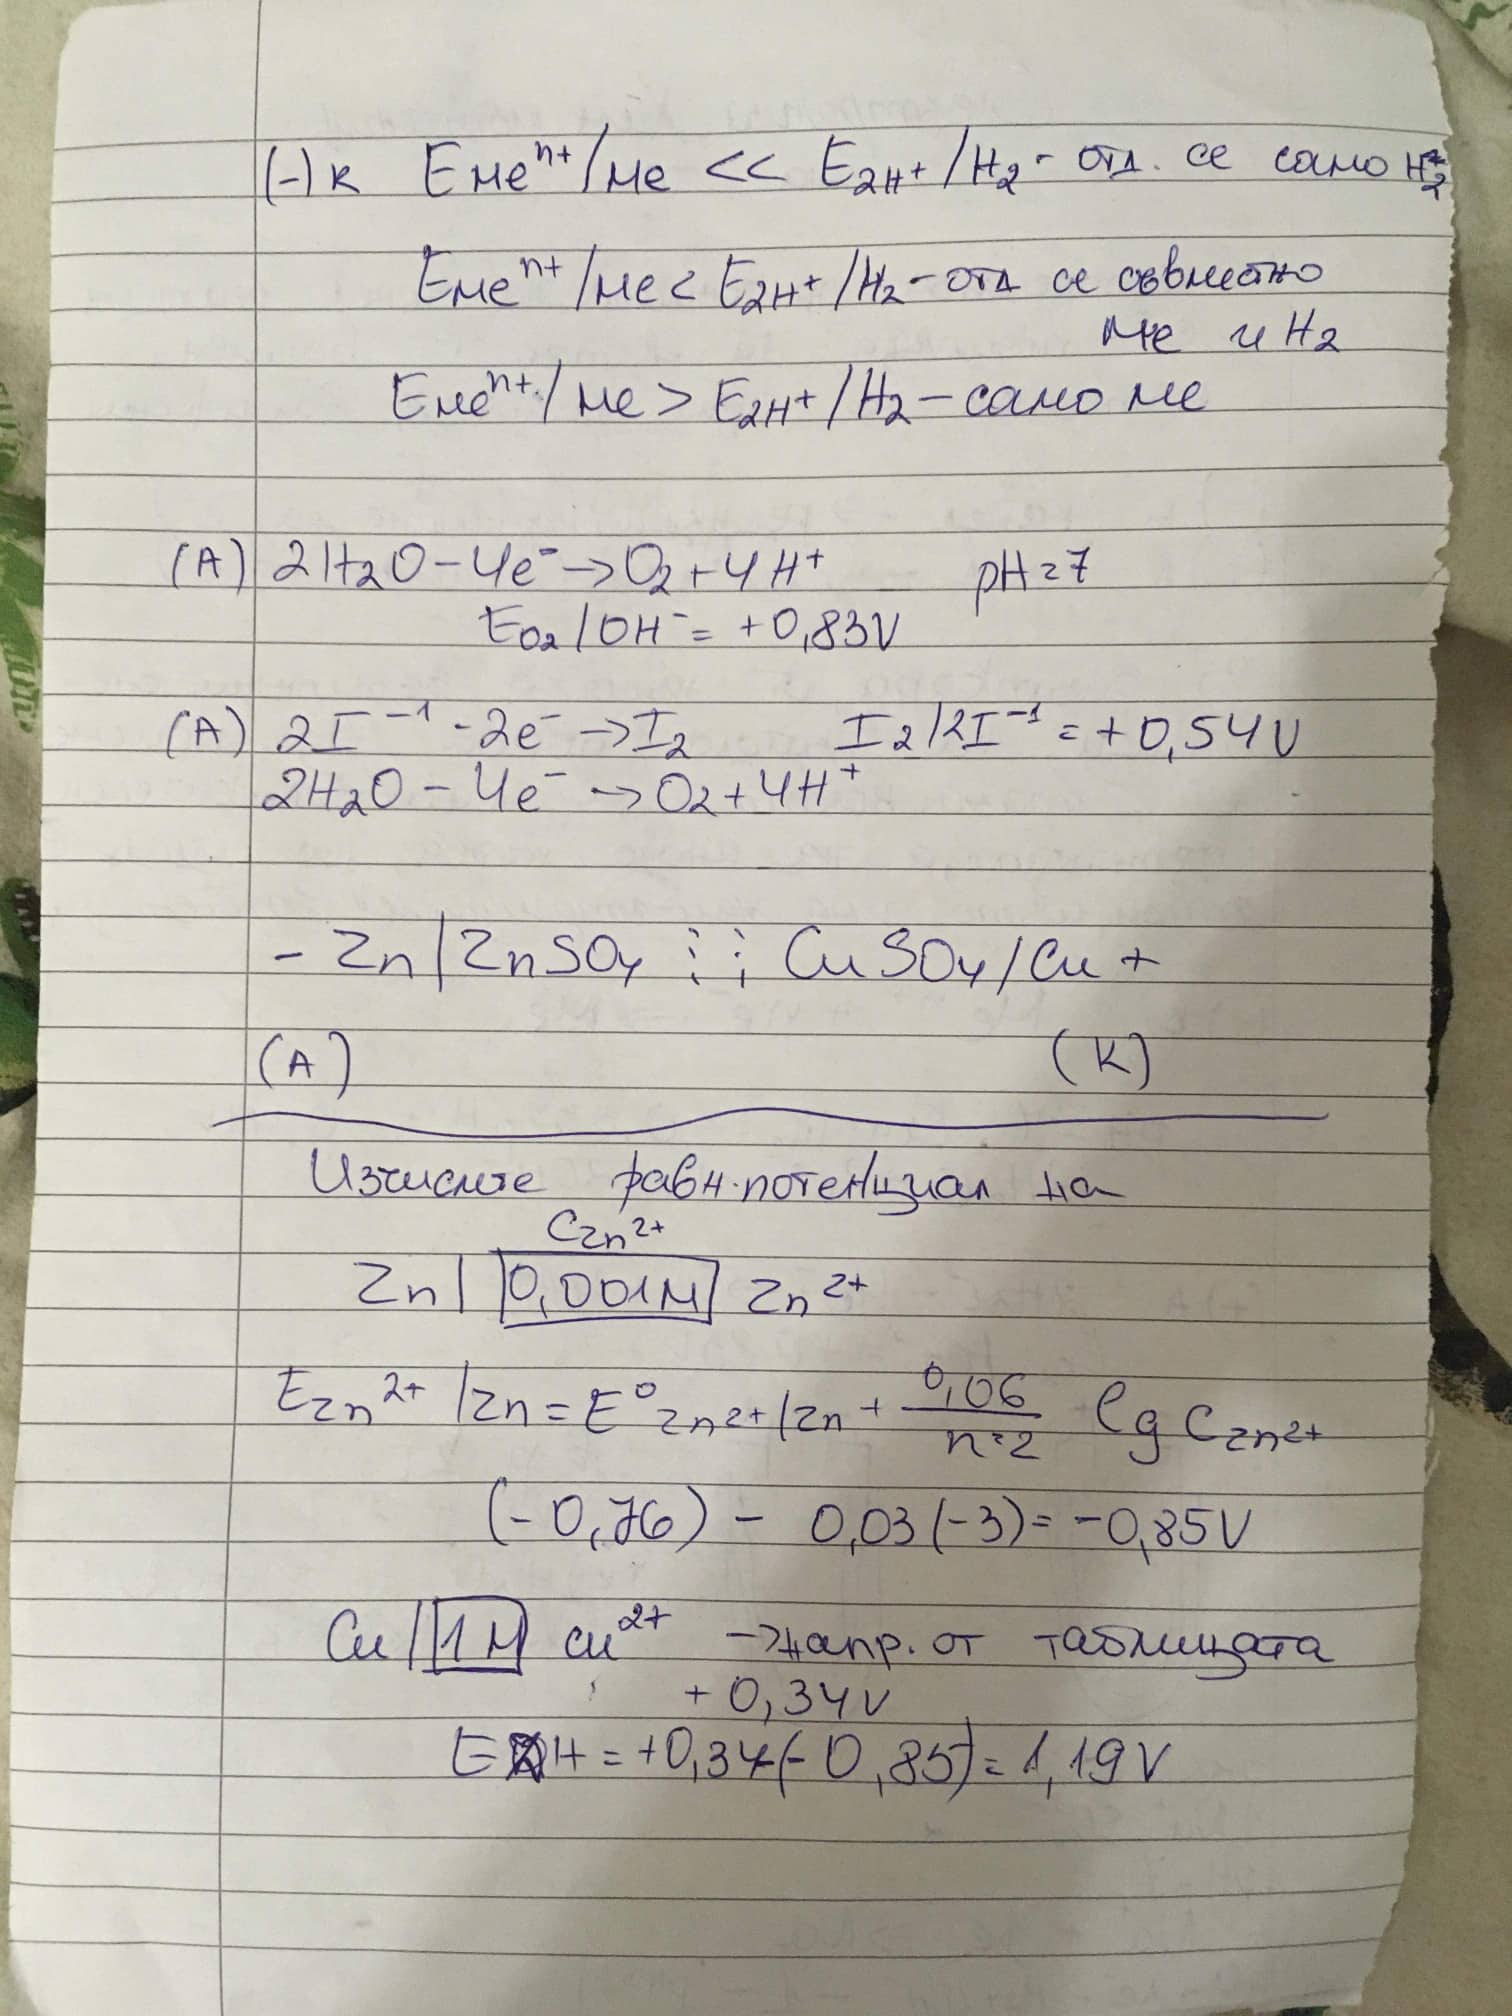 (-) К Eмеⁿ⁺/ме << E₂H⁺/H₂ - отд. се само H₂
Eмеⁿ⁺/ме < E₂H⁺/H₂ - отд се съвместно
Ме и H₂
Eмеⁿ⁺/ме > E₂H⁺/H₂ - само ме
(A) 2H₂O - 4e⁻ → O₂ + 4H⁺ pH = 7
E O₂/OH⁻ = +0,83V
(A) 2I⁻¹ - 2e⁻ → I₂ I₂/2I⁻¹ = +0,54V
2H₂O - 4e⁻ → O₂ + 4H⁺
- Zn | ZnSO₄ ⋮⋮ CuSO₄/Cu +
(A) (K)
Изчислете равн. потенциал на
C Zn²⁺
Zn | 0,001M Zn²⁺
E Zn²⁺/Zn = E⁰ Zn²⁺/Zn + 0,06/n=2 lg C Zn²⁺
(-0,76) - 0,03(-3) = -0,85V
Cu | 1M Cu²⁺ → напр. от таблицата
+0,34V
EН = +0,34(-0,85) = 1,19V